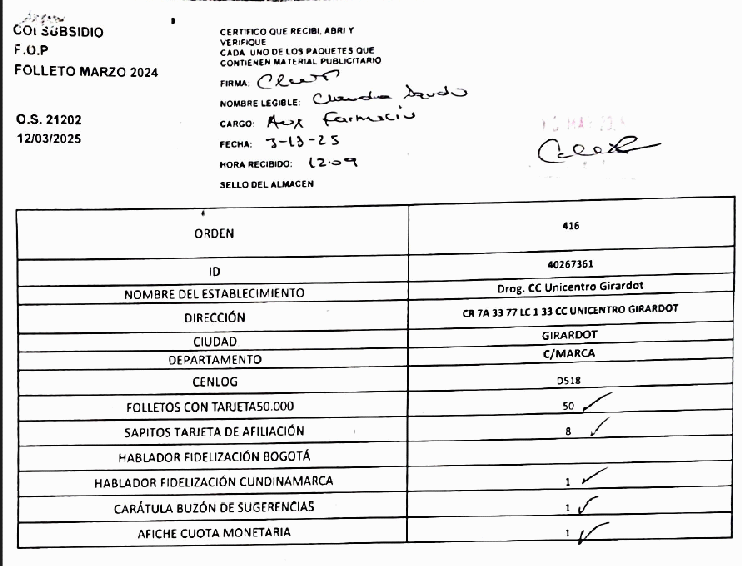 COLSUBSIDIO
F.O.P
FOLLETO MARZO 2024
O.S. 21202
12/03/2025
CERTIFICO QUE RECIBI, ABRI Y
VERIFIQUE
CADA UNO DE LOS PAQUETES QUE
CONTIENEN MATERIAL PUBLICITARIO
FIRMA:
NOMBRE LEGIBLE: Claudia
CARGO: Aux Farmacia
FECHA: 3-13-25
HORA RECIBIDO: 12:09
SELLO DEL ALMACEN
ORDEN 416
ID 40267361
NOMBRE DEL ESTABLECIMIENTO Drog. CC Unicentro Girardot
DIRECCIÓN CR 7A 33 77 LC 1 33 CC UNICENTRO GIRARDOT
CIUDAD GIRARDOT
DEPARTAMENTO C/MARCA
CENLOG D518
FOLLETOS CON TARJETA50.000 50
SAPITOS TARJETA DE AFILIACIÓN 8
HABLADOR FIDELIZACIÓN BOGOTÁ
HABLADOR FIDELIZACIÓN CUNDINAMARCA 1
CARÁTULA BUZÓN DE SUGERENCIAS 1
AFICHE CUOTA MONETARIA 1